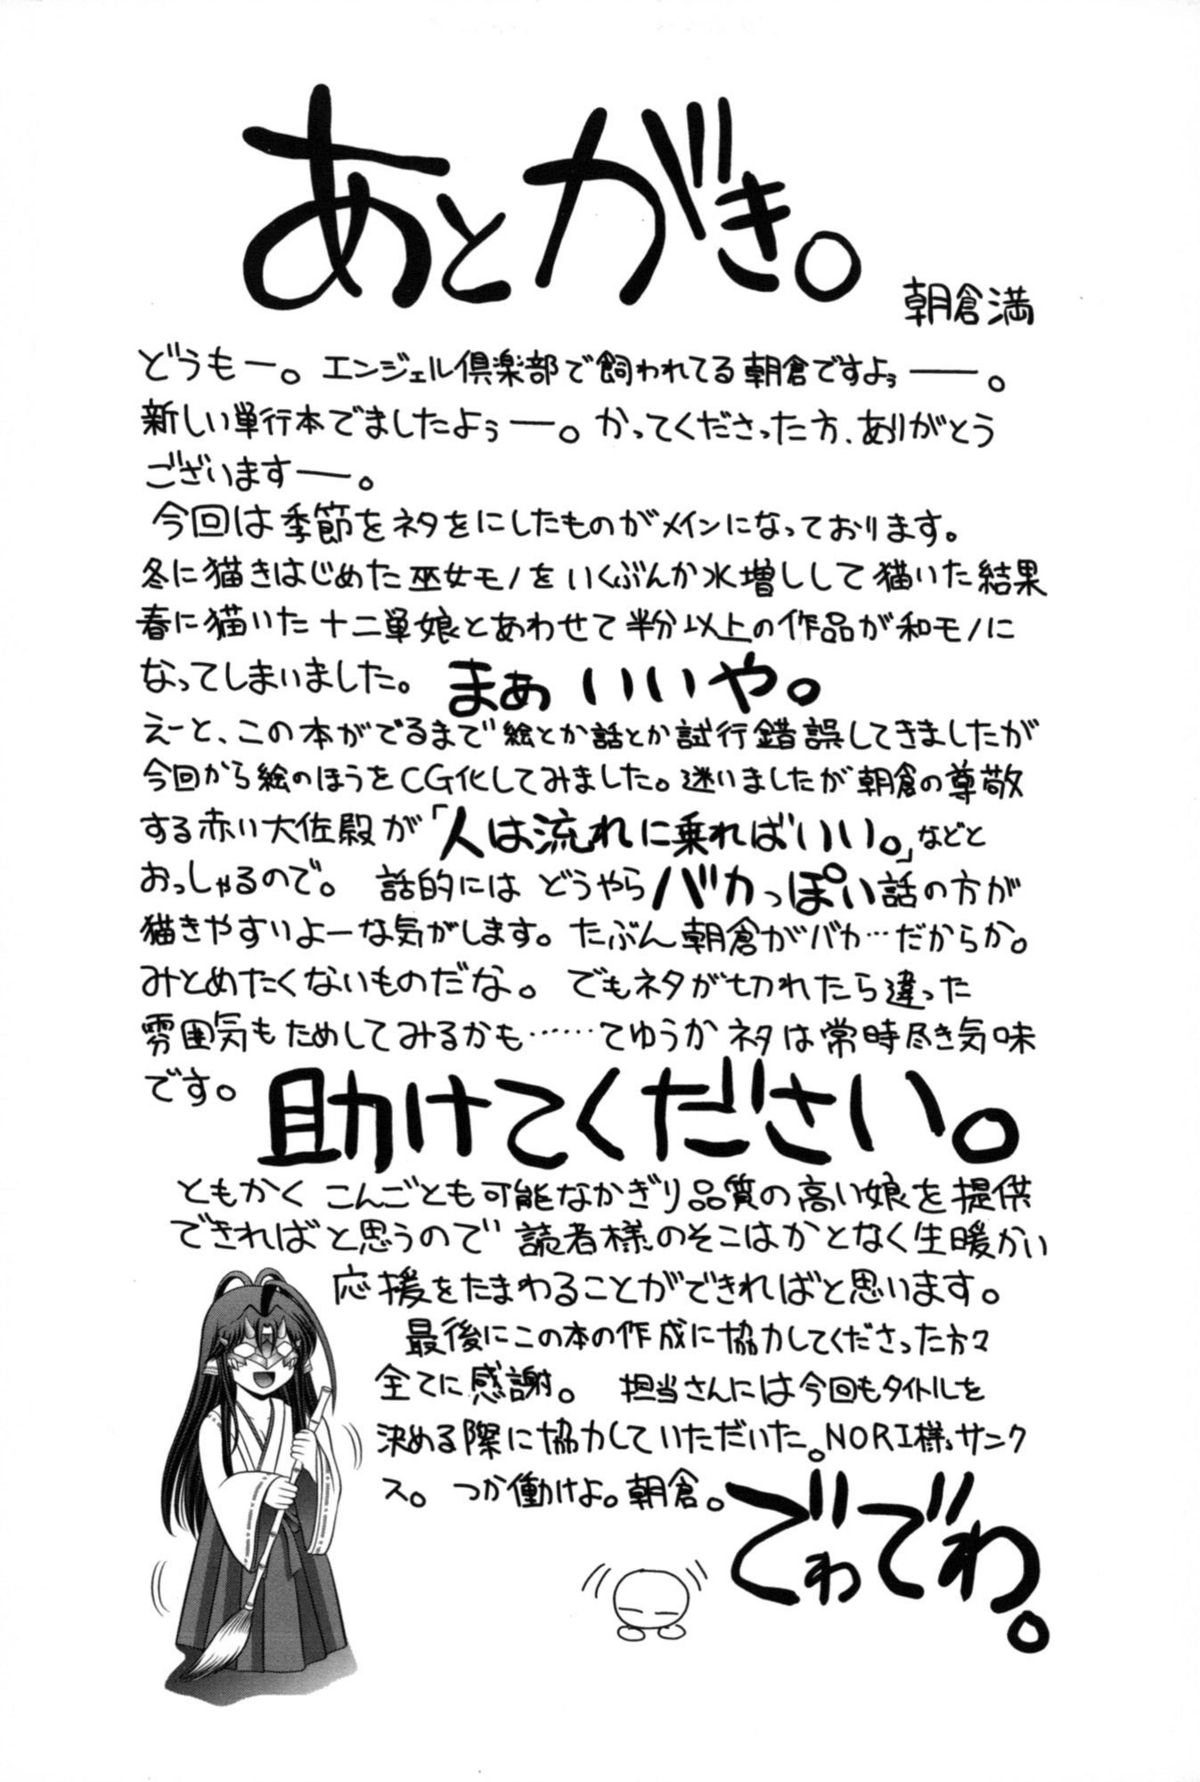 あとがき。
朝倉満
どうもー。エンジェル倶楽部で飼われてる朝倉ですよぅ――。
新しい単行本でましたよぅ―。かってくださった方、ありがとう
ございますー。
今回は季節をネタをにしたものがメインになっております。
冬に描きはじめた巫女モノをいくぶんか水増しして描いた結果
春に描いた十二単娘とあわせて半分以上の作品が和モノに
なってしまいました。まぁいいや。
えーと、この本がでるまで絵とか話とか試行錯誤してきましたが
今回から絵のほうをCG化してみました。迷いましたが朝倉の尊敬
する赤い大佐殿が「人は流れに乗ればいい。」などと
おっしゃるので。 話的にはどうやらバカっぽい話の方が
描きやすいよーな気がします。たぶん朝倉がバカ…だからか。
みとめたくないものだな。でもネタが切れたら違った
雰囲気もためしてみるかも……てゆうかネタは常時尽き気味
です。助けてください。
ともかくこんごとも可能なかぎり品質の高い娘を提供
できればと思うので読者様のそこはかとなく生暖かい
応援をたまわることができればと思います。
最後にこの本の作成に協力してくださった方々
全てに感謝。担当さんには今回もタイトルを
決める際に協力していただいた。NORI様サンク
ス。つか働けよ。朝倉。でわでわ。